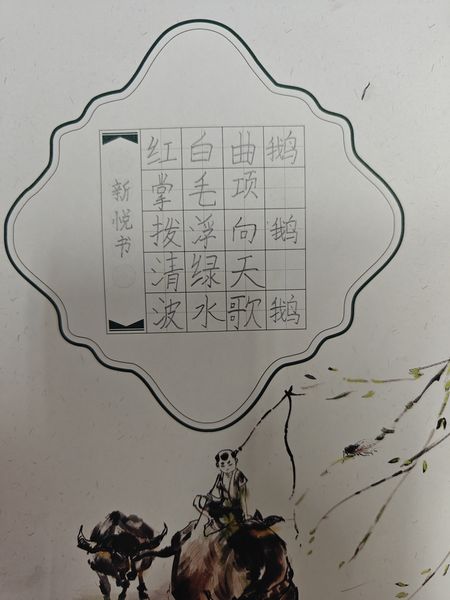 鹅 鹅 鹅
曲项向天歌
白毛浮绿水
红掌拨清波
新悦书